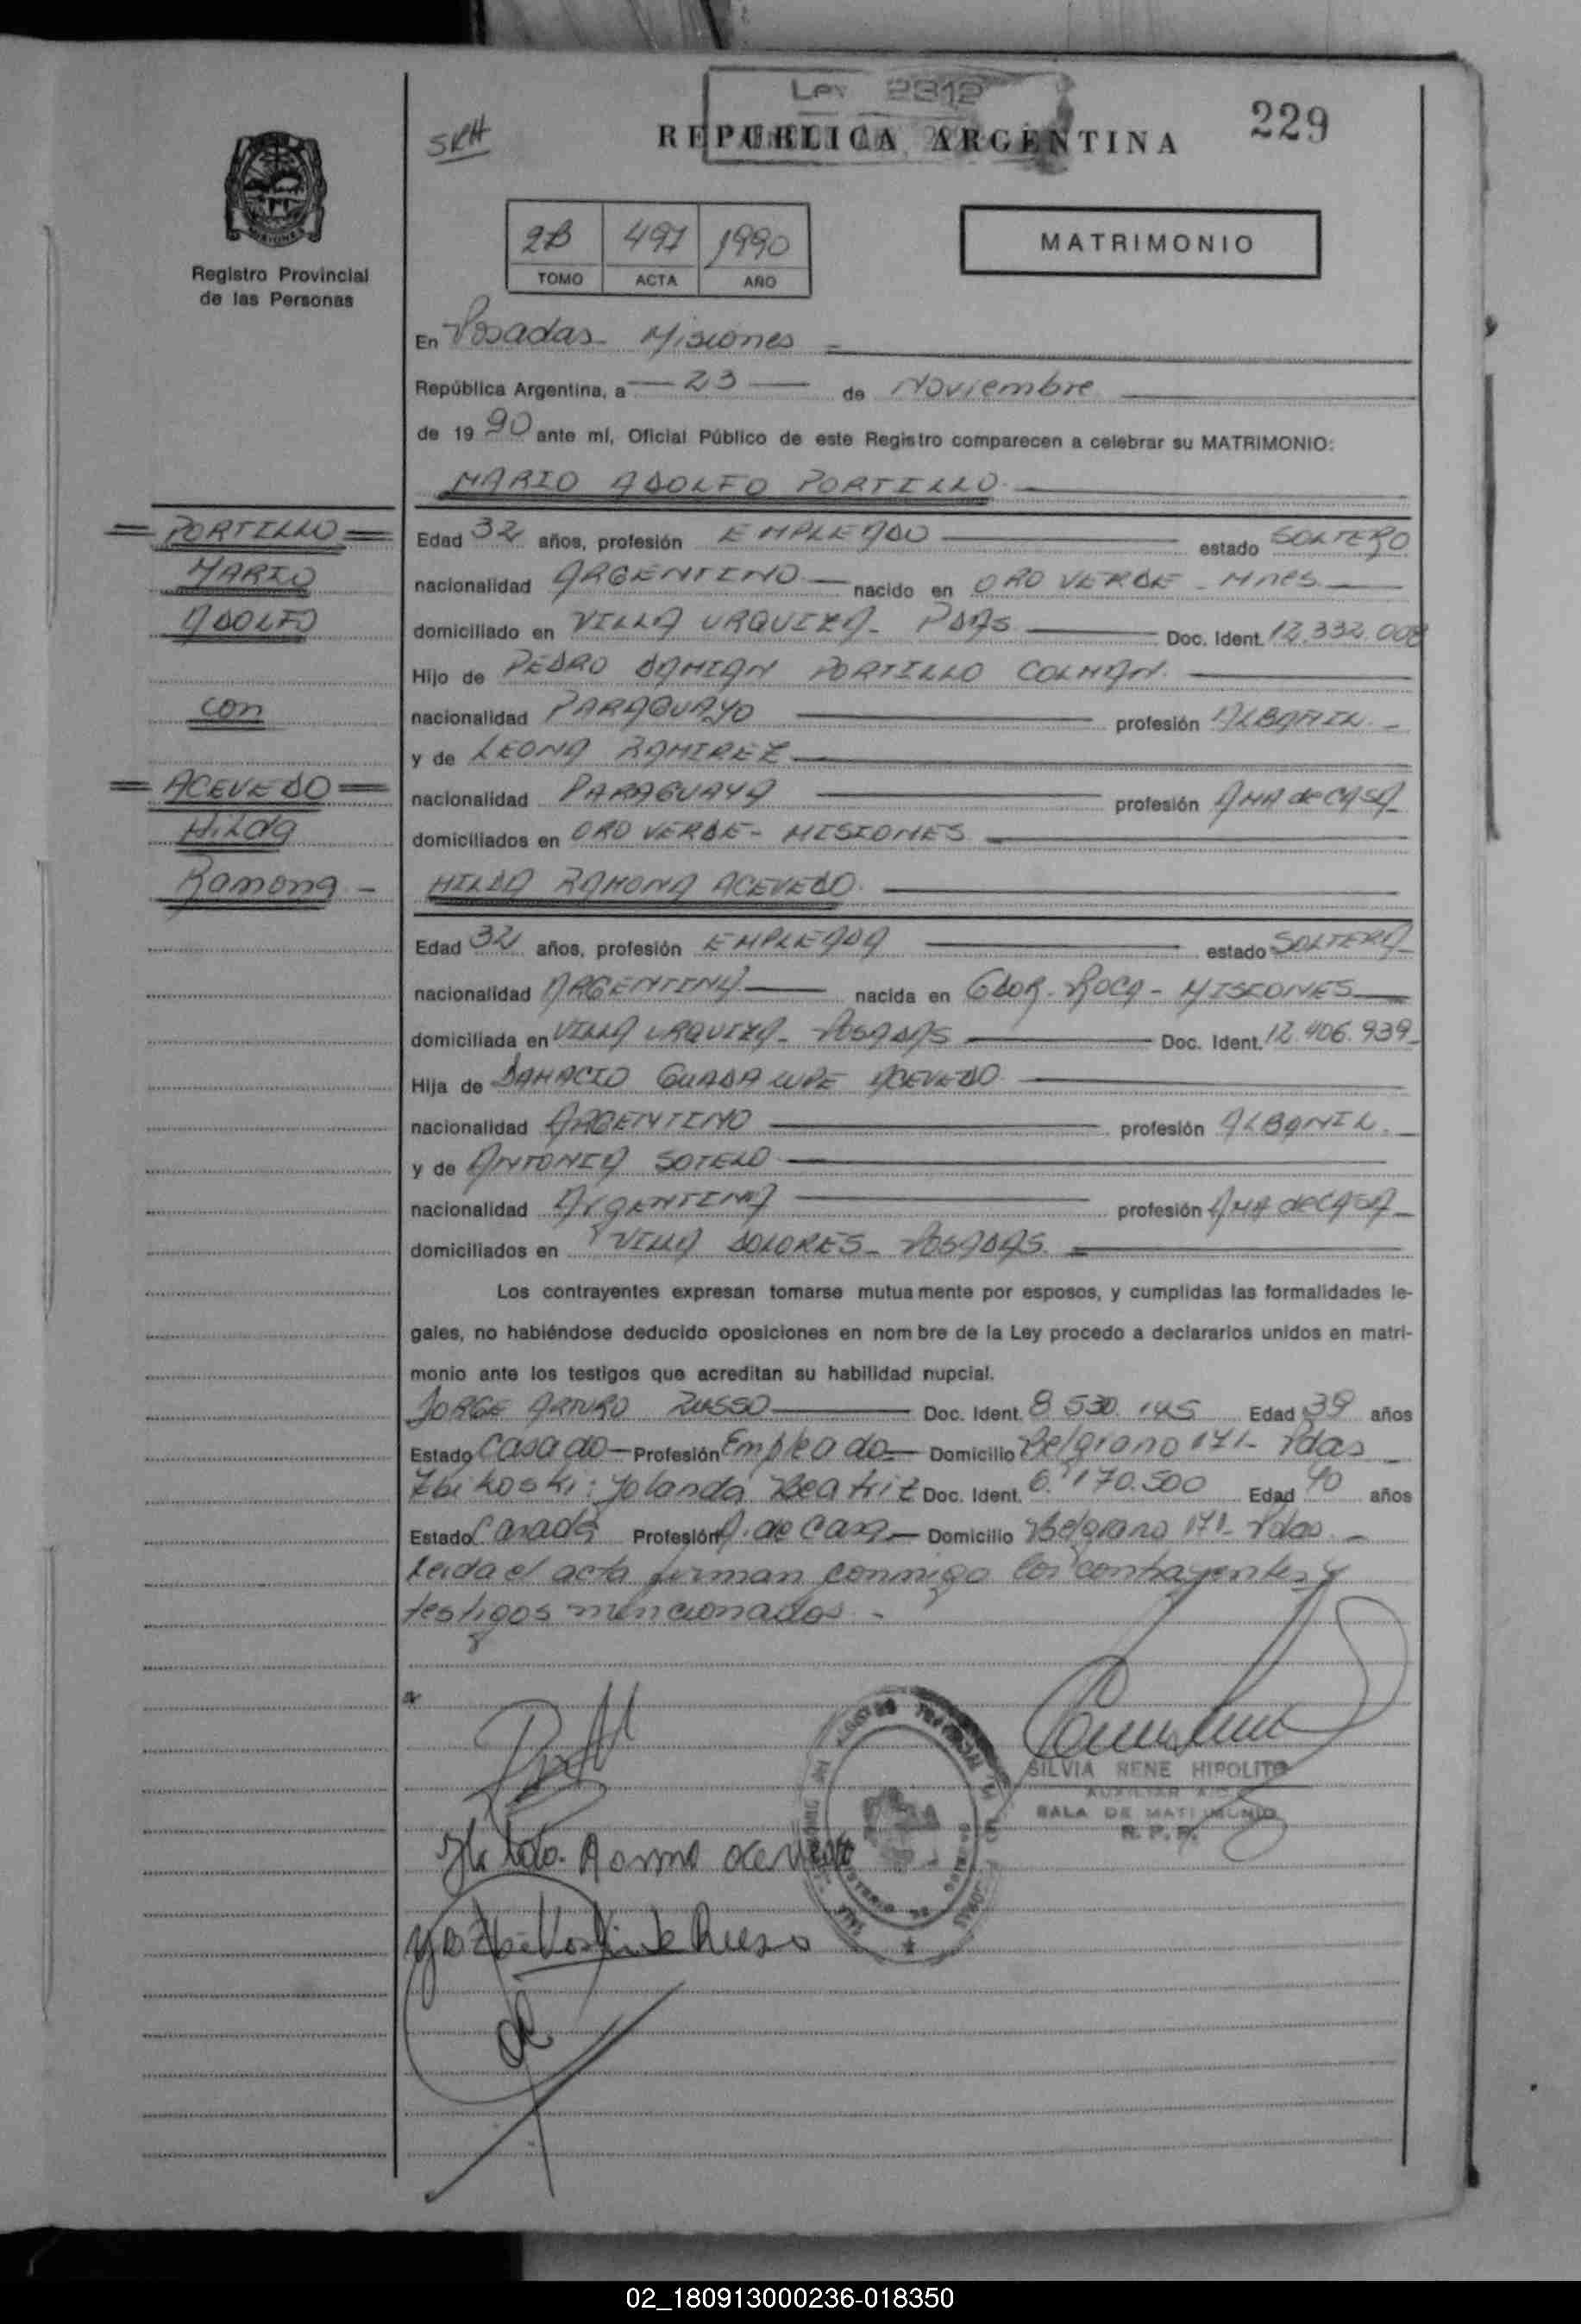 Ley 2312
SRH
REPUBLICA ARGENTINA
229
Registro Provincial
de las Personas
2B 491 1990
TOMO ACTA AÑO
MATRIMONIO
En Posadas - Misiones
República Argentina, a 23 de Noviembre
de 1990 ante mí, Oficial Público de este Registro comparecen a celebrar su MATRIMONIO:
MARIO ADOLFO PORTILLO
PORTILLO
MARIO
ADOLFO
con
ACEVEDO
Hilda
Ramona -
Edad 32 años, profesión EMPLEADO estado SOLTERO
nacionalidad ARGENTINO nacido en ORO VERDE - Mnes
domiciliado en VILLA URQUIZA - PDAS Doc. Ident. 12.332.008
Hijo de PEDRO DAMIAN PORTILLO COLMAN
nacionalidad PARAGUAYO profesión ALBAÑIL. -
y de LEONA RAMIREZ
nacionalidad PARAGUAYA profesión AMA de CASA
domiciliados en ORO VERDE - MISIONES
HILDA RAMONA ACEVEDO.
Edad 32 años, profesión EMPLEADA estado SOLTERA
nacionalidad ARGENTINA nacida en Gdor. Roca - MISIONES
domiciliada en VILLA URQUIZA - POSADAS Doc. Ident. 12.406.939
Hija de DAMACIO GUADALUPE ACEVEDO
nacionalidad ARGENTINO profesión ALBANIL.
y de ANTONIA SOTELO
nacionalidad ARGENTINA profesión AMA de CASA
domiciliados en VILLA DOLORES - POSADAS
Los contrayentes expresan tomarse mutuamente por esposos, y cumplidas las formalidades le-
gales, no habiéndose deducido oposiciones en nombre de la Ley procedo a declararlos unidos en matri-
monio ante los testigos que acreditan su habilidad nupcial.
JORGE ARTURO RUSSO Doc. Ident. 8.530.145 Edad 39 años
Estado Casado Profesión Empleado Domicilio Belgrano 171 - Pdas
Zbikoski: Yolanda Beatriz Doc. Ident. 6.170.500 Edad 40 años
Estado Casada Profesión A. de Casa Domicilio Belgrano 171 - Pdas. -
Leida el acta firman conmigo los contrayentes y
testigos mencionados. -
SILVIA RENE HIPOLITO
AUXILIAR
SALA DE MATRIMONIO
R. P. P.
Hilda Ramona Acevedo
YB Zbikoski de Russo
02_180913000236-018350